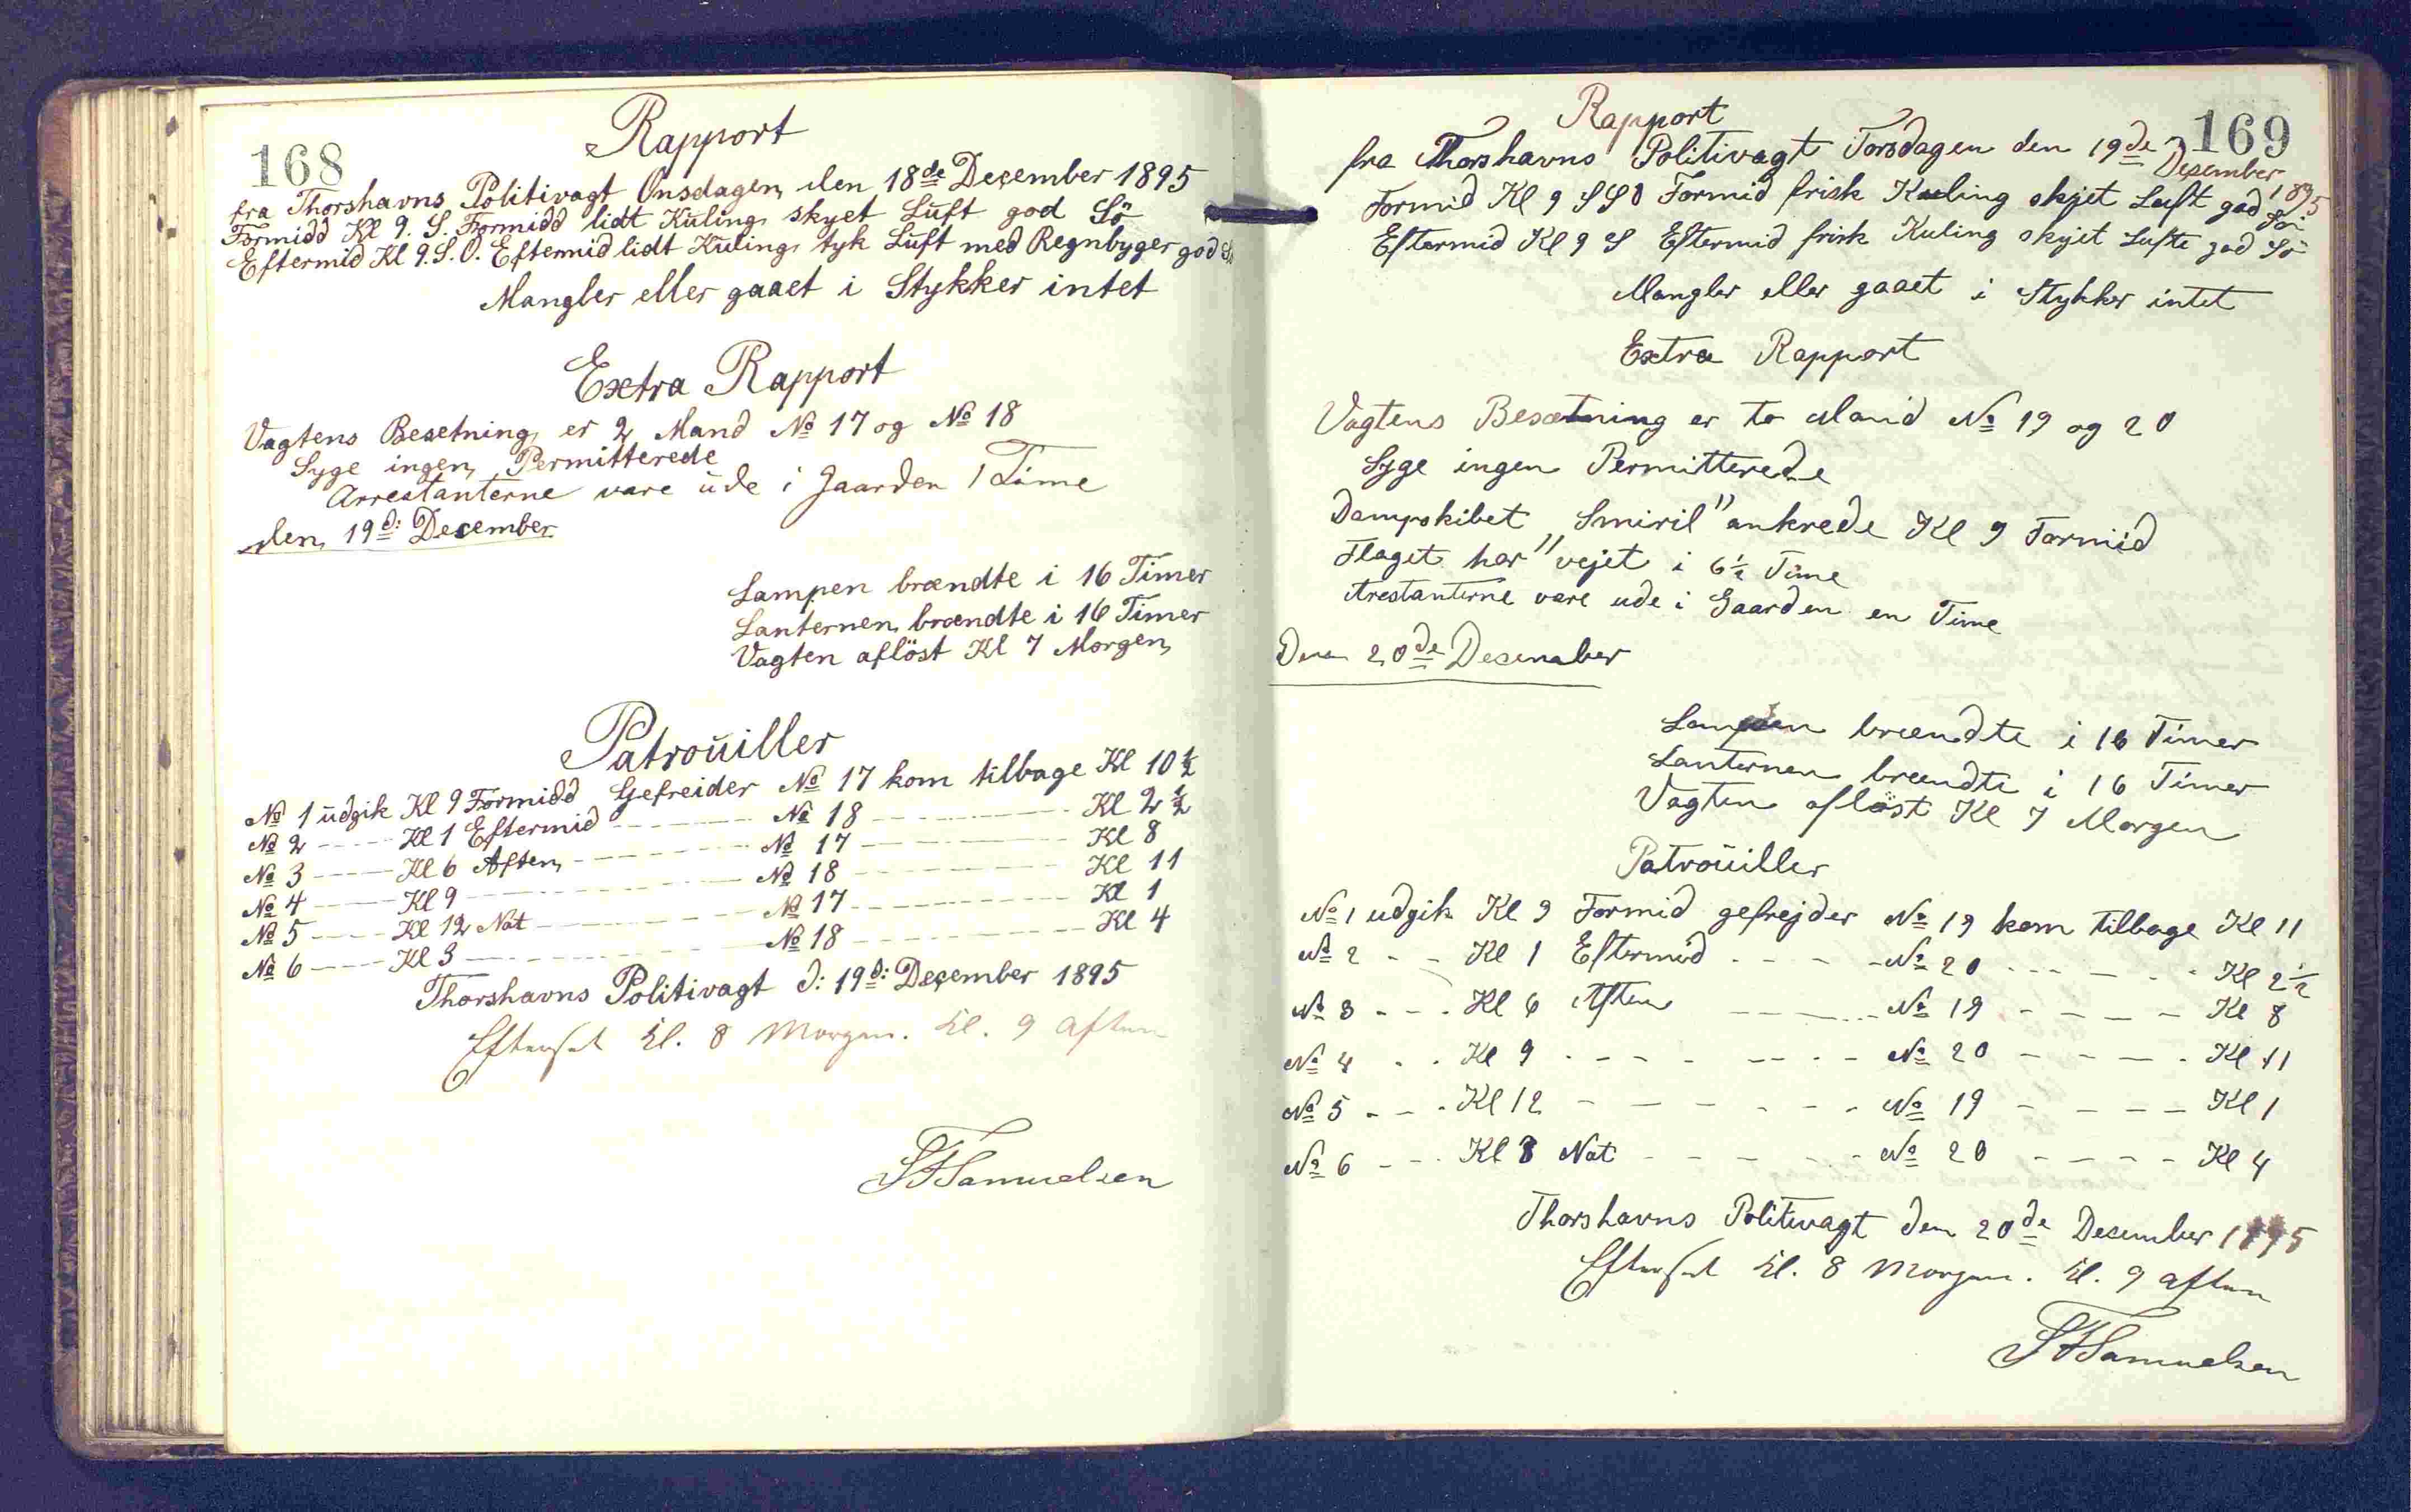 168
Rapport
fra Thorshavns Politivagt Onsdagen den 18de December 1895
Formidd Kl 9. S. Formidd lidt Kuling skyet Luft god Sö
Eftermid Kl 9. S. O. Eftermid lidt Kuling tyk Luft med Regnbyger god Sö
Mangler eller gaaet i Stykker intet
Extra Rapport
Vagtens Besetning er 2 Mand No 17 og No 18
Syge ingen Permitterede
Arrestanterne vare ude i Gaarden 1 Time
den 19d: December
Lampen brændte i 16 Timer
Lanternen brændte i 16 Timer
Vagten aflöst Kl 7 Morgen
Patrouiller
No 1 udgik Kl 9 Formidd Gefreider No 17 kom tilbage Kl 10 1/2
No 2 ---- Kl 1 Eftermid ---- No 18 ---- Kl 2 1/2
No 3 ---- Kl 6 Aften ---- No 17 ---- Kl 8
No 4 ---- Kl 9 ---- No 18 ---- Kl 11
No 5 ---- Kl 12 Nat ---- No 17 ---- Kl 1
No 6 ---- Kl 3 ---- No 18 ---- Kl 4
Thorshavns Politivagt d: 19d: December 1895
Efterset Kl. 8 Morgen. Kl. 9 Aften
Samuelsen
169
Rapport
fra Thorshavns Politivagt Torsdagen den 19de Desember 1895
Formid Kl 9 SSO Formid frisk Kuling skyet Luft god Sö
Eftermid Kl 9 S Eftermid frisk Kuling skyet Luft god Sö
Mangler eller gaaet i Stykker intet
Extra Rapport
Vagtens Besætning er to Mand No 19 og 20
Syge ingen Permitterede
Dampskibet „Smiril" ankrede Kl 9 Formid
Flaget har vejet i 6 1/2 Time
Arestanterne vare ude i Gaarden en Time
Den 20de Desember
Lampen brændte i 16 Timer
Lanternen brændte i 16 Timer
Vagten aflöst Kl 7 Morgen
Patrouiller
No 1 udgik Kl 9 Formid gefrejder No 19 kom tilbage Kl 11
No 2 - - Kl 1 Eftermid - - - - No 20 - - - - Kl 2 1/2
No 3 - - - Kl 6 Aften - - - - No 19 - - - - Kl 8
No 4 - - Kl 9 - - - - No 20 - - - - Kl 11
No 5 - - - Kl 12 - - - - No 19 - - - - Kl 1
No 6 - - - Kl 3 Nat - - - - No 20 - - - - Kl 4
Thorshavns Politivagt den 20de Desember 1895
Efterset Kl. 8 Morgen. Kl. 9 Aften
Samuelsen